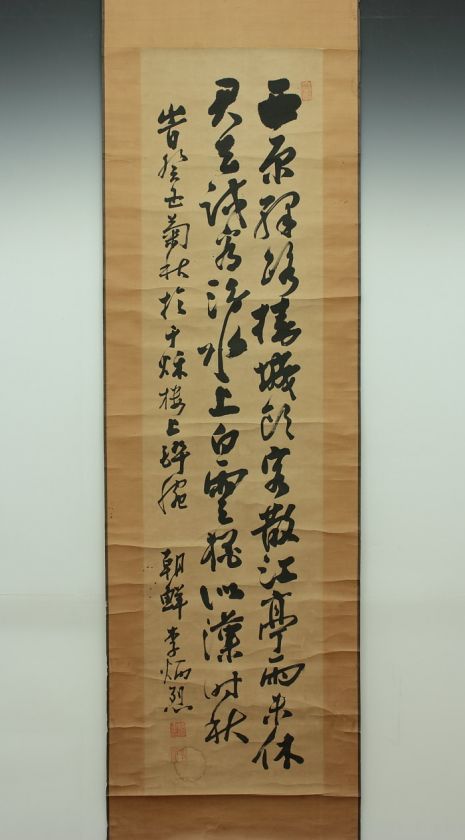 西原驛路掛城頭客散江亭雨未休
君去試看汾水上白雲猶似漢時秋
旹癸丑菊秋於千秌樓上醉腕 朝鮮 李炳烈